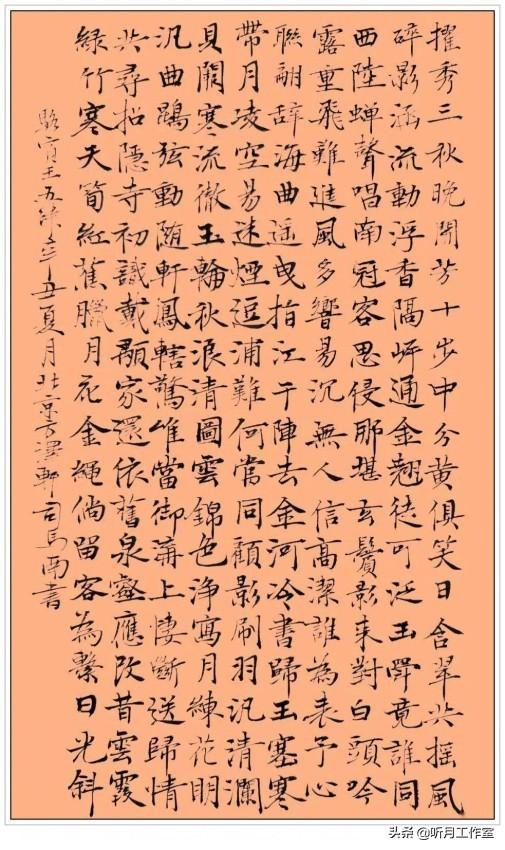 擢秀三秋晚開芳十步中分黃俱笑日含翠共搖風
碎影涵流動浮香隔岸通金翹徒可泛玉斝竟誰同
西陸蟬聲唱南冠客思侵那堪玄鬢影來對白頭吟
露重飛難進風多響易沉無人信高潔誰為表予心
聯翩辭海曲遙曳指江干陣去金河冷書歸玉塞寒
帶月陵空易迷煙逗浦難何當同顧影刷羽汎清瀾
貝闕寒流徹玉輪秋浪清圖雲錦色淨寫月練花明
汎曲鵾弦動隨軒鳳轄驚唯當御溝上悽斷送歸情
共尋招隱寺初識戴顒家還依舊泉壑應改昔雲霞
綠竹寒天筍紅蕉臘月花金繩倘留客為繫日光斜
駱賓王五律辛丑夏月北京方澤軒司馬南書
头条 @听月工作室